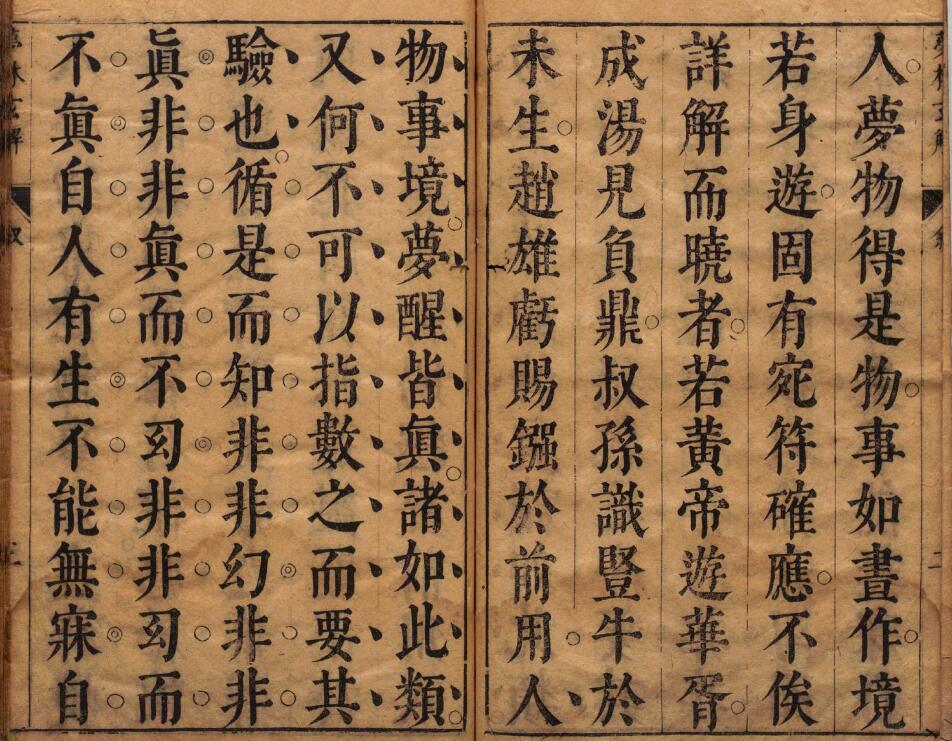 人夢物得是物事如晝作境
若身遊固有宛符確應不俟
詳解而曉者若黃帝遊華胥
成湯見負鼎叔孫識豎牛於
未生趙雄虧賜鏹於前用人
物事境夢醒皆眞諸如此類
又何不可以指數之而要其
驗也循是而知非非幻非非
眞非非眞而不幻非非幻而
不眞自人有生不能無寐自
林玄解 叙 三